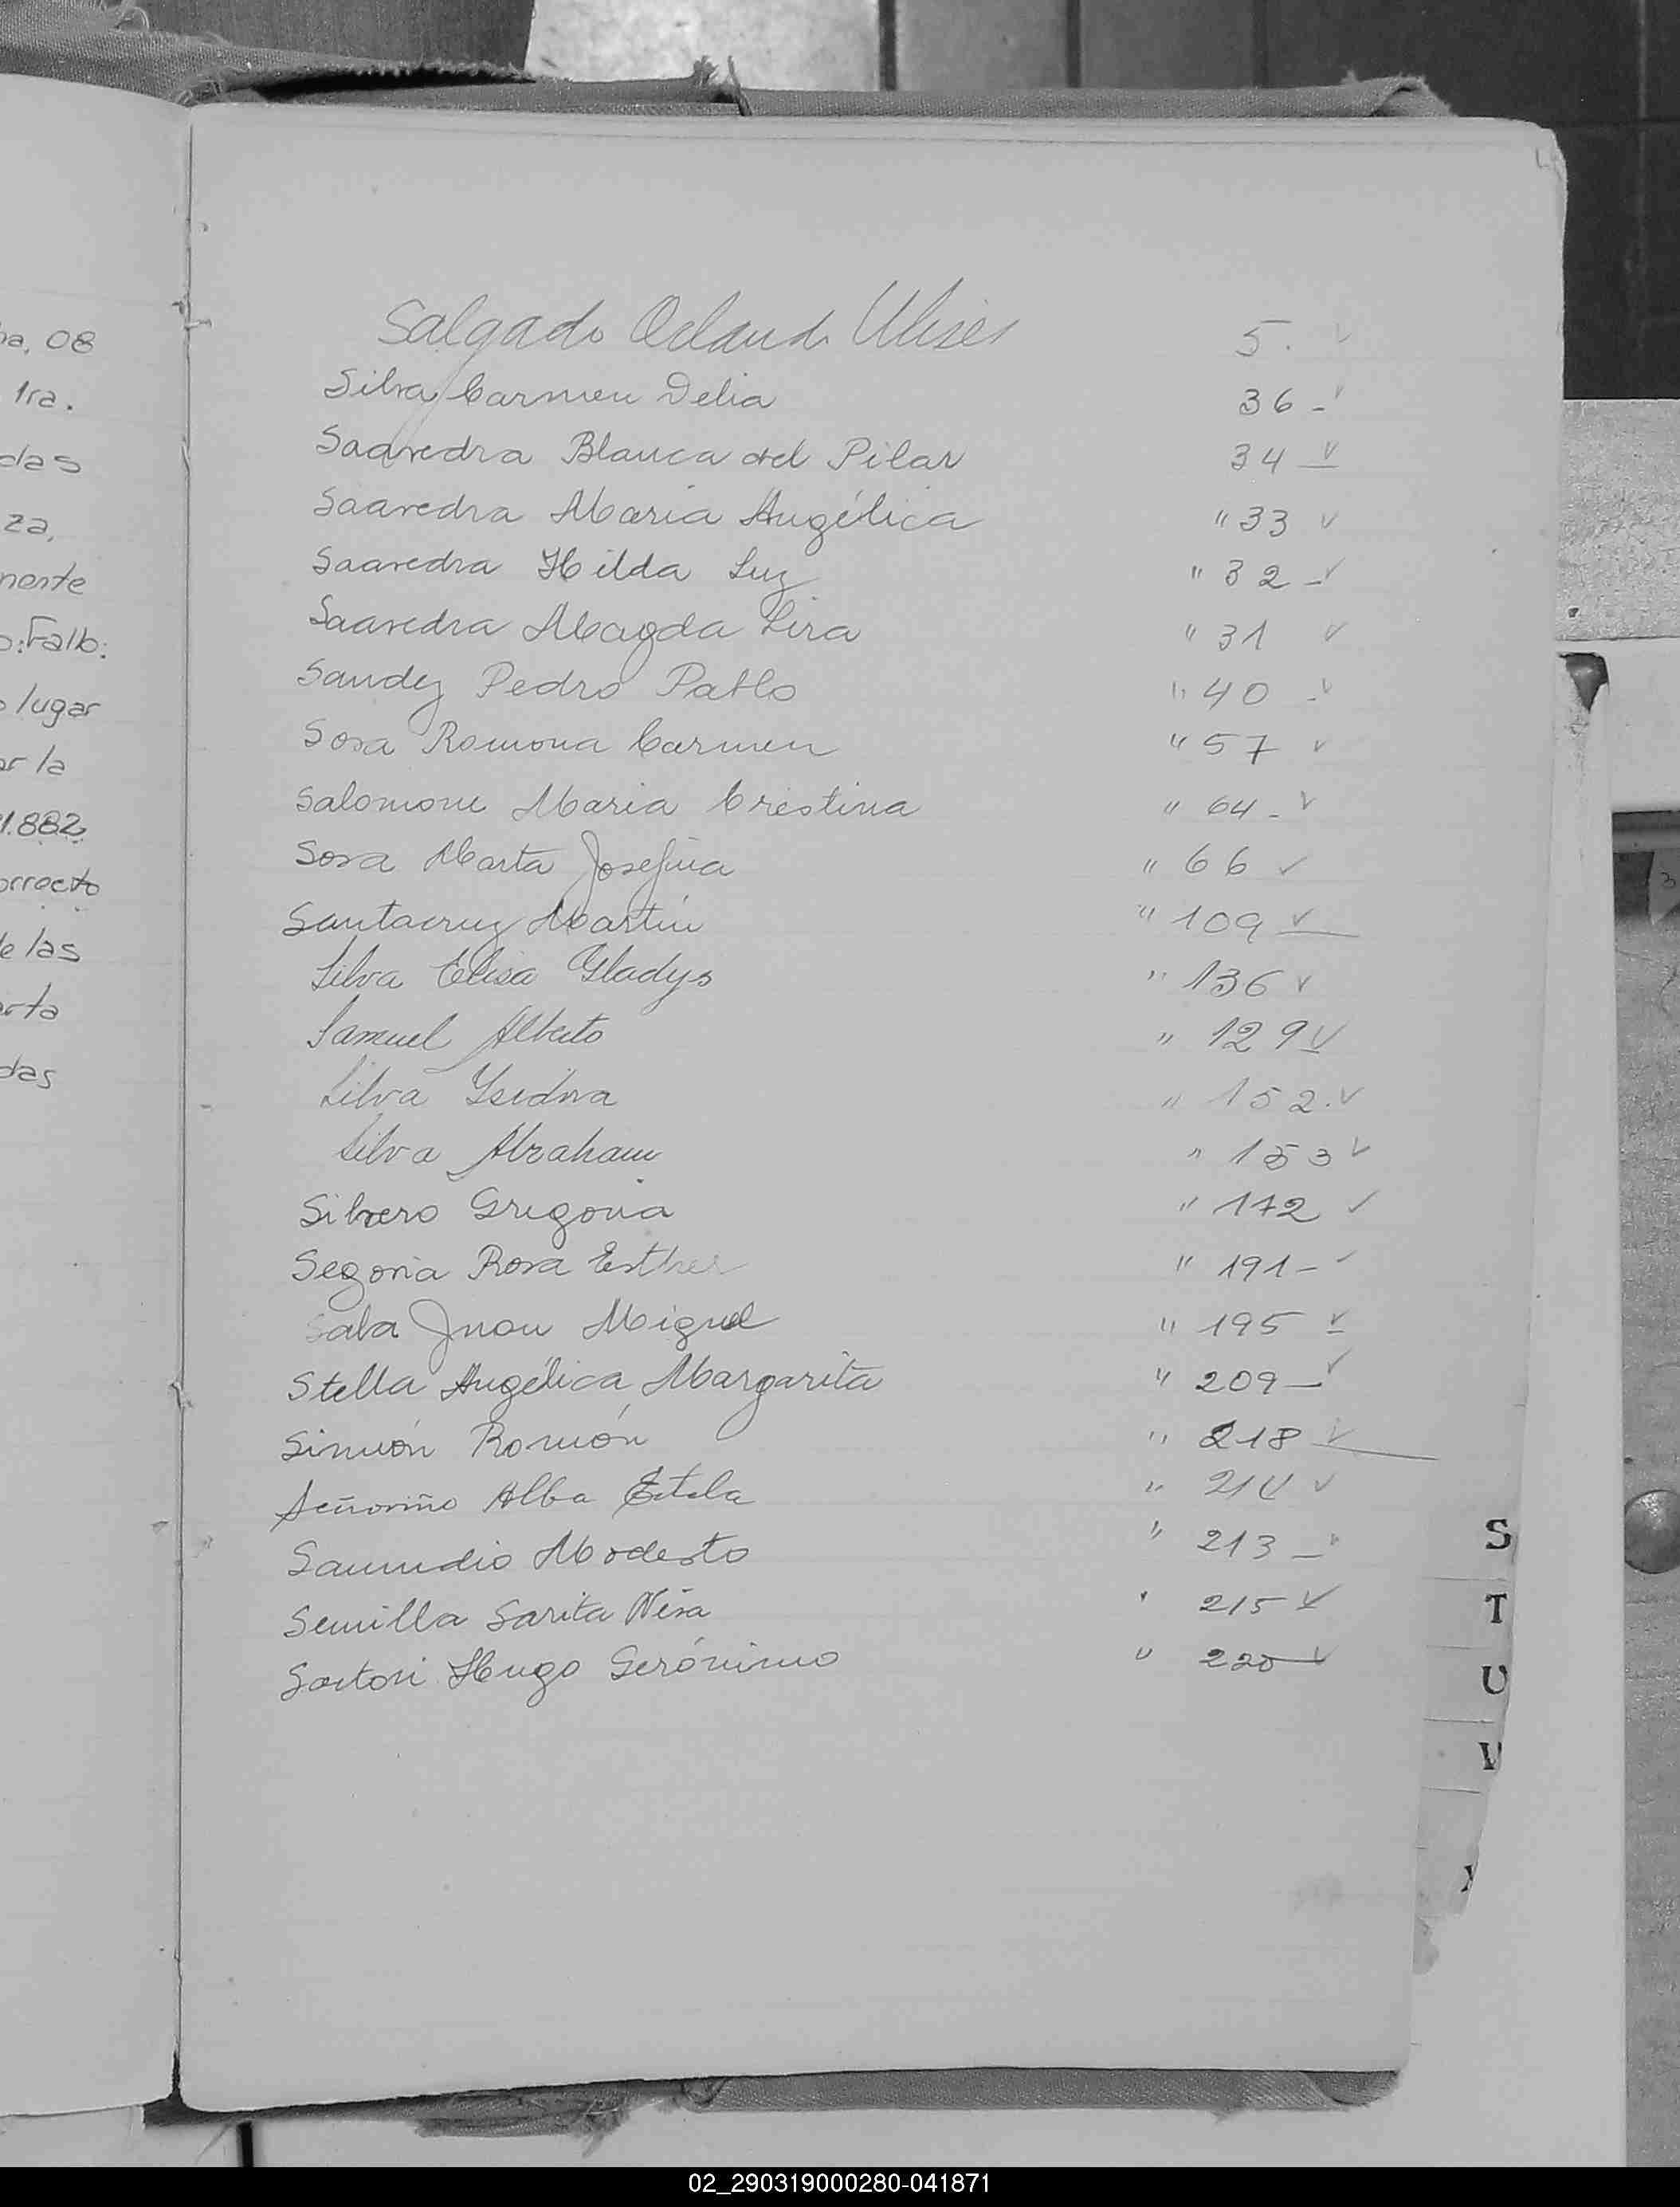 Salgado Orlando Ulises 5. ✓
Silva Carmen Delia 36 - ✓
Saavedra Blanca del Pilar 34 ✓
Saavedra Maria Angélica " 33 ✓
Saavedra Hilda Luz " 32 - ✓
Saavedra Magda Lira " 31 ✓
Sandez Pedro Pablo " 40 - ✓
Sosa Ramona Carmen " 57 ✓
Salomone Maria Cristina " 64 - ✓
Sosa Marta Josefina " 66 ✓
Santacruz Martín " 109 ✓
Silva Elisa Gladys " 136 ✓
Samuel Alberto " 129 ✓
Silva Ysidora " 152. ✓
Silva Abraham " 153 ✓
Silvero Gregoria " 172 ✓
Segovia Rosa Esther " 191 - ✓
Sala Juan Miguel " 195 ✓
Stella Angélica Margarita " 209 - ✓
Simeón Román " 218 ✓
Alba Estela " 214 ✓
Samudio Modesto " 213 - ✓
Semilla Sarita 215 ✓
Sartori Hugo Gerónimo " 220 ✓
08
1ra.
das
za,
lugar
la
1.882
las
das
S
T
U
V
02_290319000280-041871